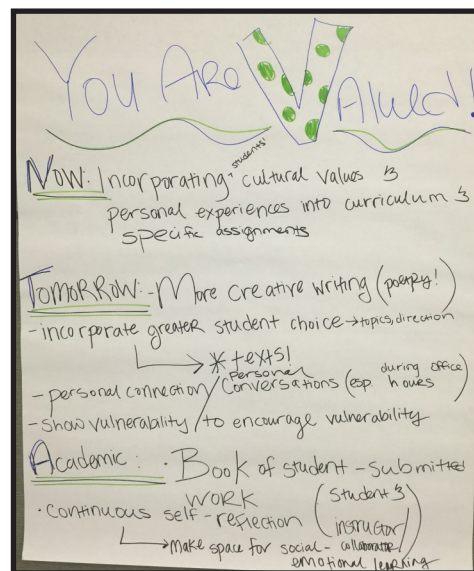 You Are Valued!
students'
Now: Incorporating ^ cultural values &
personal experiences into curriculum &
specific assignments
Tomorrow: - More creative writing (poetry!)
- incorporate greater student choice → topics, direction
→ * texts!
- personal connection / Personal Conversations (esp. during office hours)
- show vulnerability / to encourage vulnerability
Academic: · Book of student - submitted
work
· continuous self-reflection (student & instructor)
→ make space for social - collaborative
emotional learning